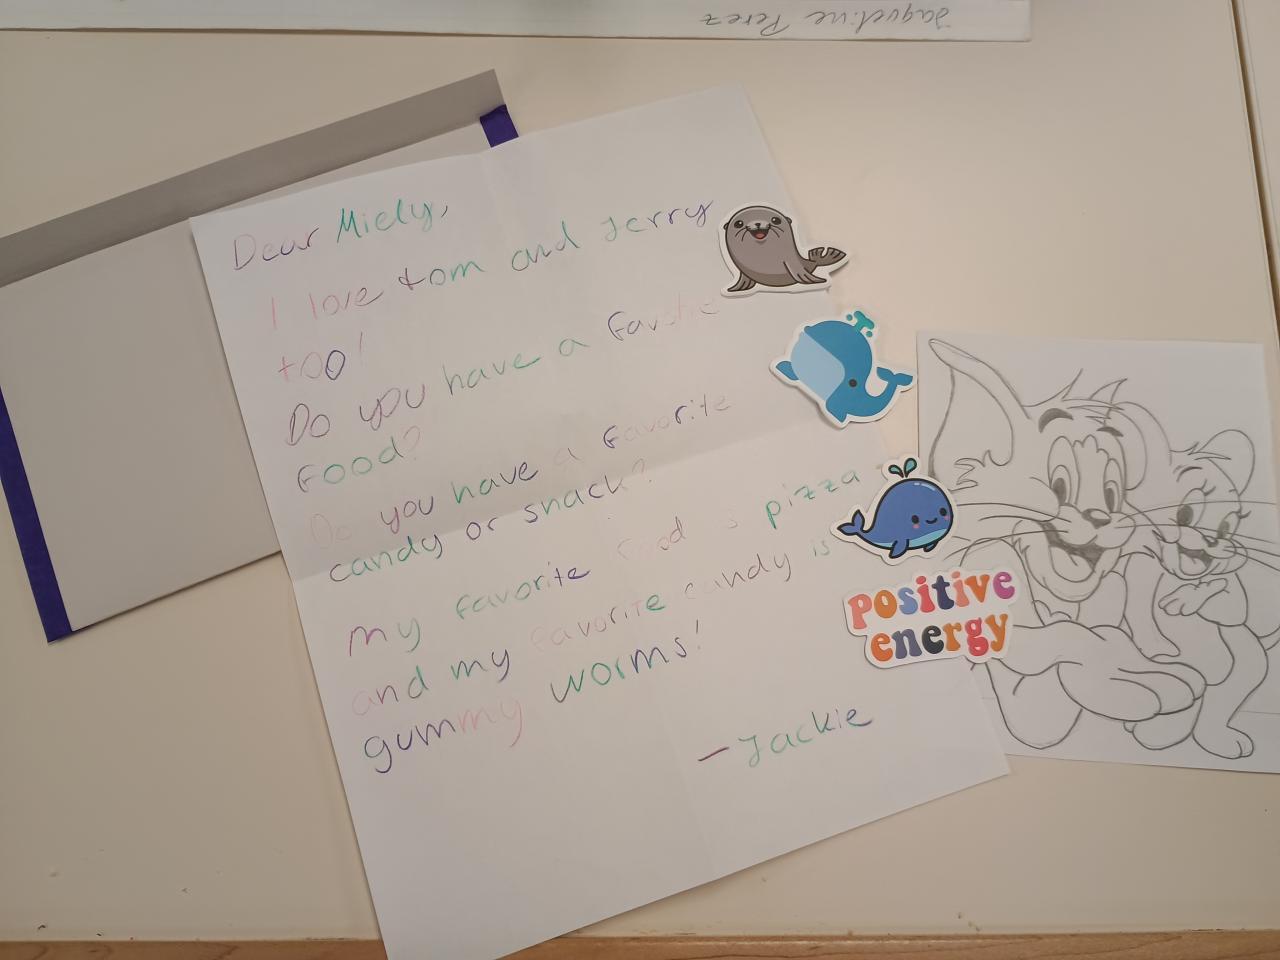 Jaqueline Perez
Dear Miely,
I love tom and Jerry
too!
Do you have a favorite
food?
Do you have a favorite
candy or snack?
My favorite food is pizza
and my favorite candy is
gummy worms!
- Jackie
positive
energy